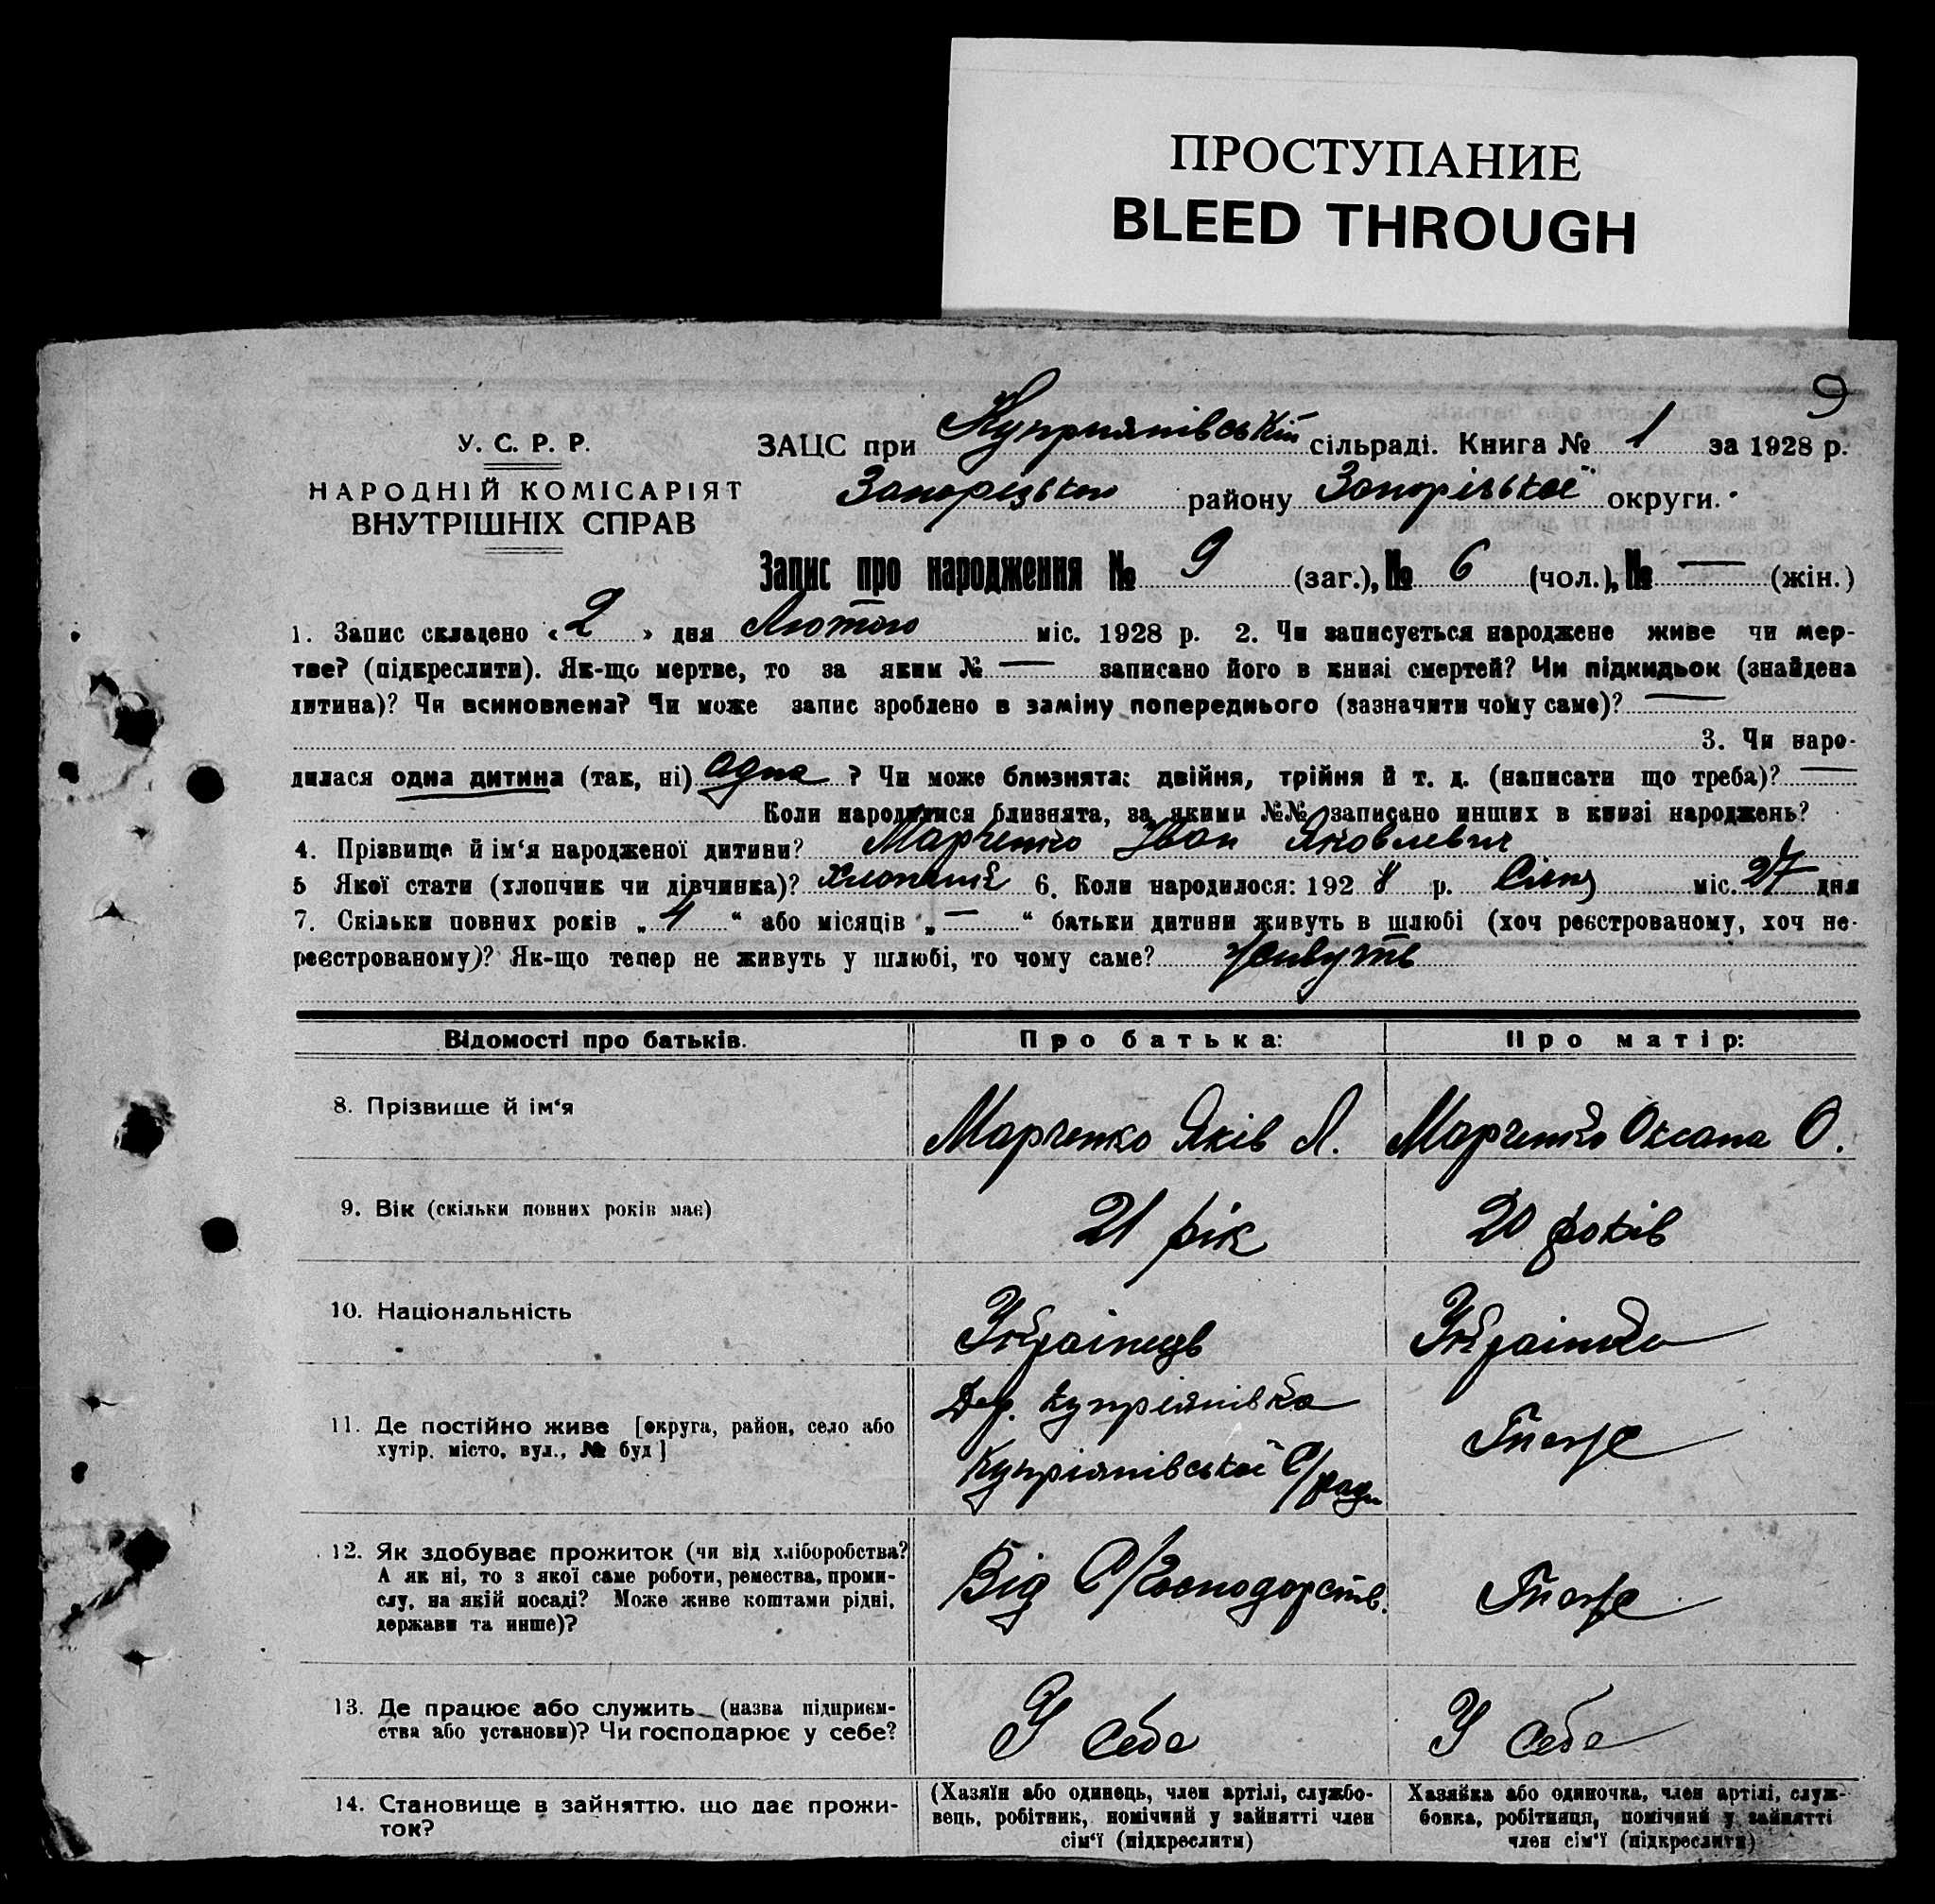 ПРОСТУПАНИЕ
BLEED THROUGH
9
У. С. Р. Р.
НАРОДНІЙ КОМІСАРІЯТ
ВНУТРІШНІХ СПРАВ
ЗАЦС при Куприянівській сільраді. Книга № 1 за 1928 р.
Запорізького району Запорізької округи.
Запис про народження № 9 (заг.), № 6 (чол.), № — (жін.)
1. Запис складено «2» дня Лютого міс. 1928 р. 2. Чи записується народжене живе чи мер-
тве? (підкреслити). Як-що мертве, то за яким № — записано його в книзі смертей? Чи підкидьок (знайдена
дитина)? Чи всиновлена? Чи може запис зроблено в заміну попереднього (зазначити чому саме)? —
3. Чи наро-
дилася одна дитина (так, ні) одна ? Чи може близнята: двійня, трійня й т. д. (написати що треба)? —
Коли народилися близнята, за якими №№ записано инших в книзі народжень?
4. Прізвище й ім‘я народженої дитини? Марченко Іван Яковлевич
5 Якої стати (хлопчик чи дівчинка)? 6. Коли народилося: 1928 р. Січня міс. 27 дня
7. Скільки повних років „ “ або місяців „—“ батьки дитини живуть в шлюбі (хоч реєстрованому, хоч не-
реєстрованому)? Як-що тепер не живуть у шлюбі, то чому саме? Живуть
Відомості про батьків.
Про батька:
Про матір:
8. Прізвище й ім‘я
Марченко Яків Л.
Марченко Оксана О.
9. Вік (скільки повних років має)
21 рік
20 років
10. Національність
Українець
Українка
11. Де постійно живе [округа, район, село або
хутір, місто, вул., № буд]
Дер. Купріянівка
Купріянівської С/ради
Теж
12. Як здобуває прожиток (чи від хліборобства?
А як ні, то з якої саме роботи, ремества, проми-
слу, на якій посаді? Може живе коштами рідні,
держави та инше)?
Від С/Господарств.
Теж
13. Де працює або служить (назва підприєм-
ства або установи)? Чи господарює у себе?
У себе
У себе
14. Становище в зайняттю, що дає прожи-
ток?
(Хазяїн або одинець, член артілі, службо-
вець, робітник, помічний у зайнятті член
сім‘ї (підкреслити)
Хазяйка або одиночка, член артілі, служ-
бовка, робітниця, помічний у зайнятті
член сім‘ї (підкреслити)